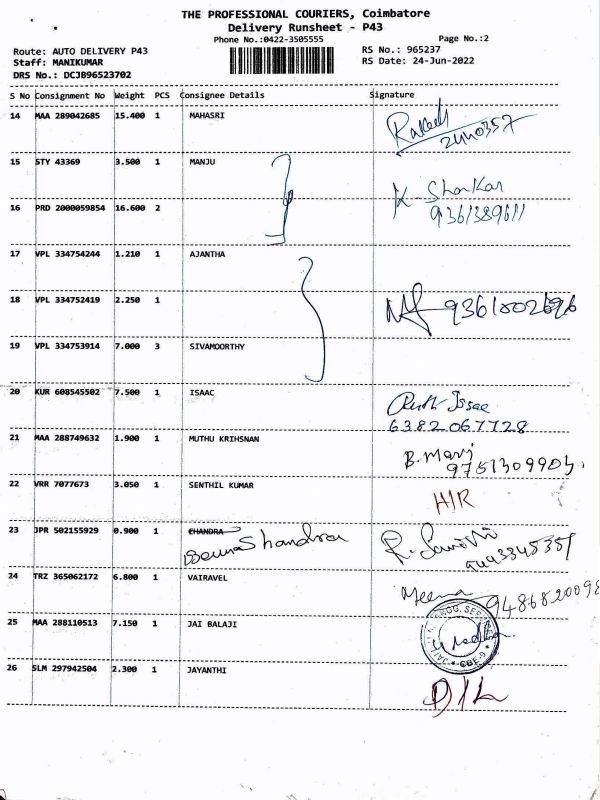 THE PROFESSIONAL COURIERS, Coimbatore
Delivery Runsheet - P43
Phone No.:0422-3505555
Page No.:2
Route: AUTO DELIVERY P43
RS No.: 965237
Staff: MANIKUMAR
RS Date: 24-Jun-2022
DRS No.: DCJB96523702
S No Consignment No Weight PCS Consignee Details Signature
14 MAA 289042685 15.400 1 MAHASRI
15 STY 43369 3.500 1 MANJU
K. Shankar
16 PRD 2000059854 16.600 2
9361389611
17 VPL 334754244 1.210 1 AJANTHA
18 VPL 334752419 2.250 1
19 VPL 334753914 7.000 3 SIVAMOORTHY
20 KUR 608545502 7.500 1 ISAAC
6382067728
21 MAA 288749632 1.900 1 MUTHU KRIHSNAN
B. Mari
22 VRR 7077673 3.050 1 SENTHIL KUMAR
H/R
23 JPR 502155929 0.900 1 CHANDRA
Shandra
24 TRZ 365062172 6.800 1 VAIRAVEL
Meena
9486820098
25 MAA 288110513 7.150 1 JAI BALAJI
26 SLM 297942504 2.300 1 JAYANTHI
D/L